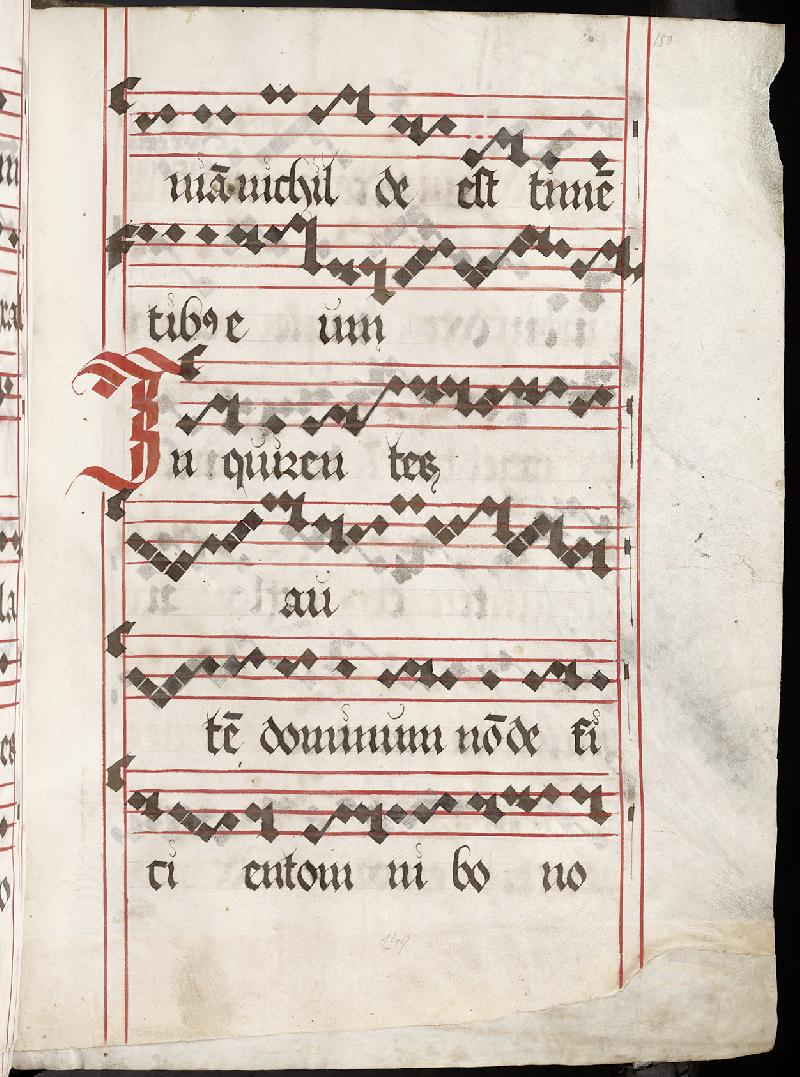 150
niā nichil de est timē
tibꝰ e um
In quiren tes
au
tē dominum nō de fi
ci ent om ni bo no
149